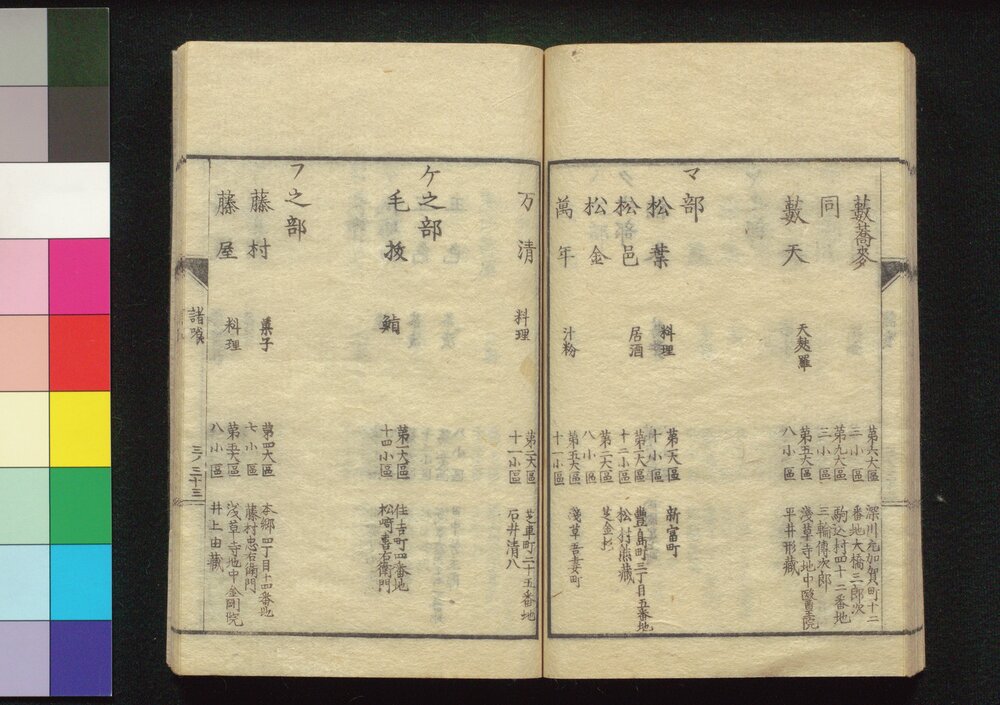 藪蕎麥
第六大區
三小區
深川元加賀町十二
番地大橋三郎次
同
第九大區
三小區
駒込村四十二番地
三輪傳次郎
藪天
天麩羅
第五大區
八小區
淺草寺地中醫王院
平井形藏
マ部
松葉
料理
第一大區
十小區
新富町
松邑
居酒
第一大區
十二小區
豐島町三丁目五番地
松村熊藏
松金
第二大區
八小區
芝金杉
萬年
汁粉
第五大區
十一小區
淺草吾妻町
万清
料理
第二大區
十一小區
芝車町二十五番地
石井清八
ケ之部
毛拔
鮹
第一大區
十四小區
住吉町四番地
松崎喜右衛門
フ之部
藤村
菓子
第四大區
七小區
本郷四丁目十四番地
藤村忠右衛門
藤屋
料理
第五大區
八小區
淺草寺地中金剛院
井上由藏
諸喰
三ノ三十三